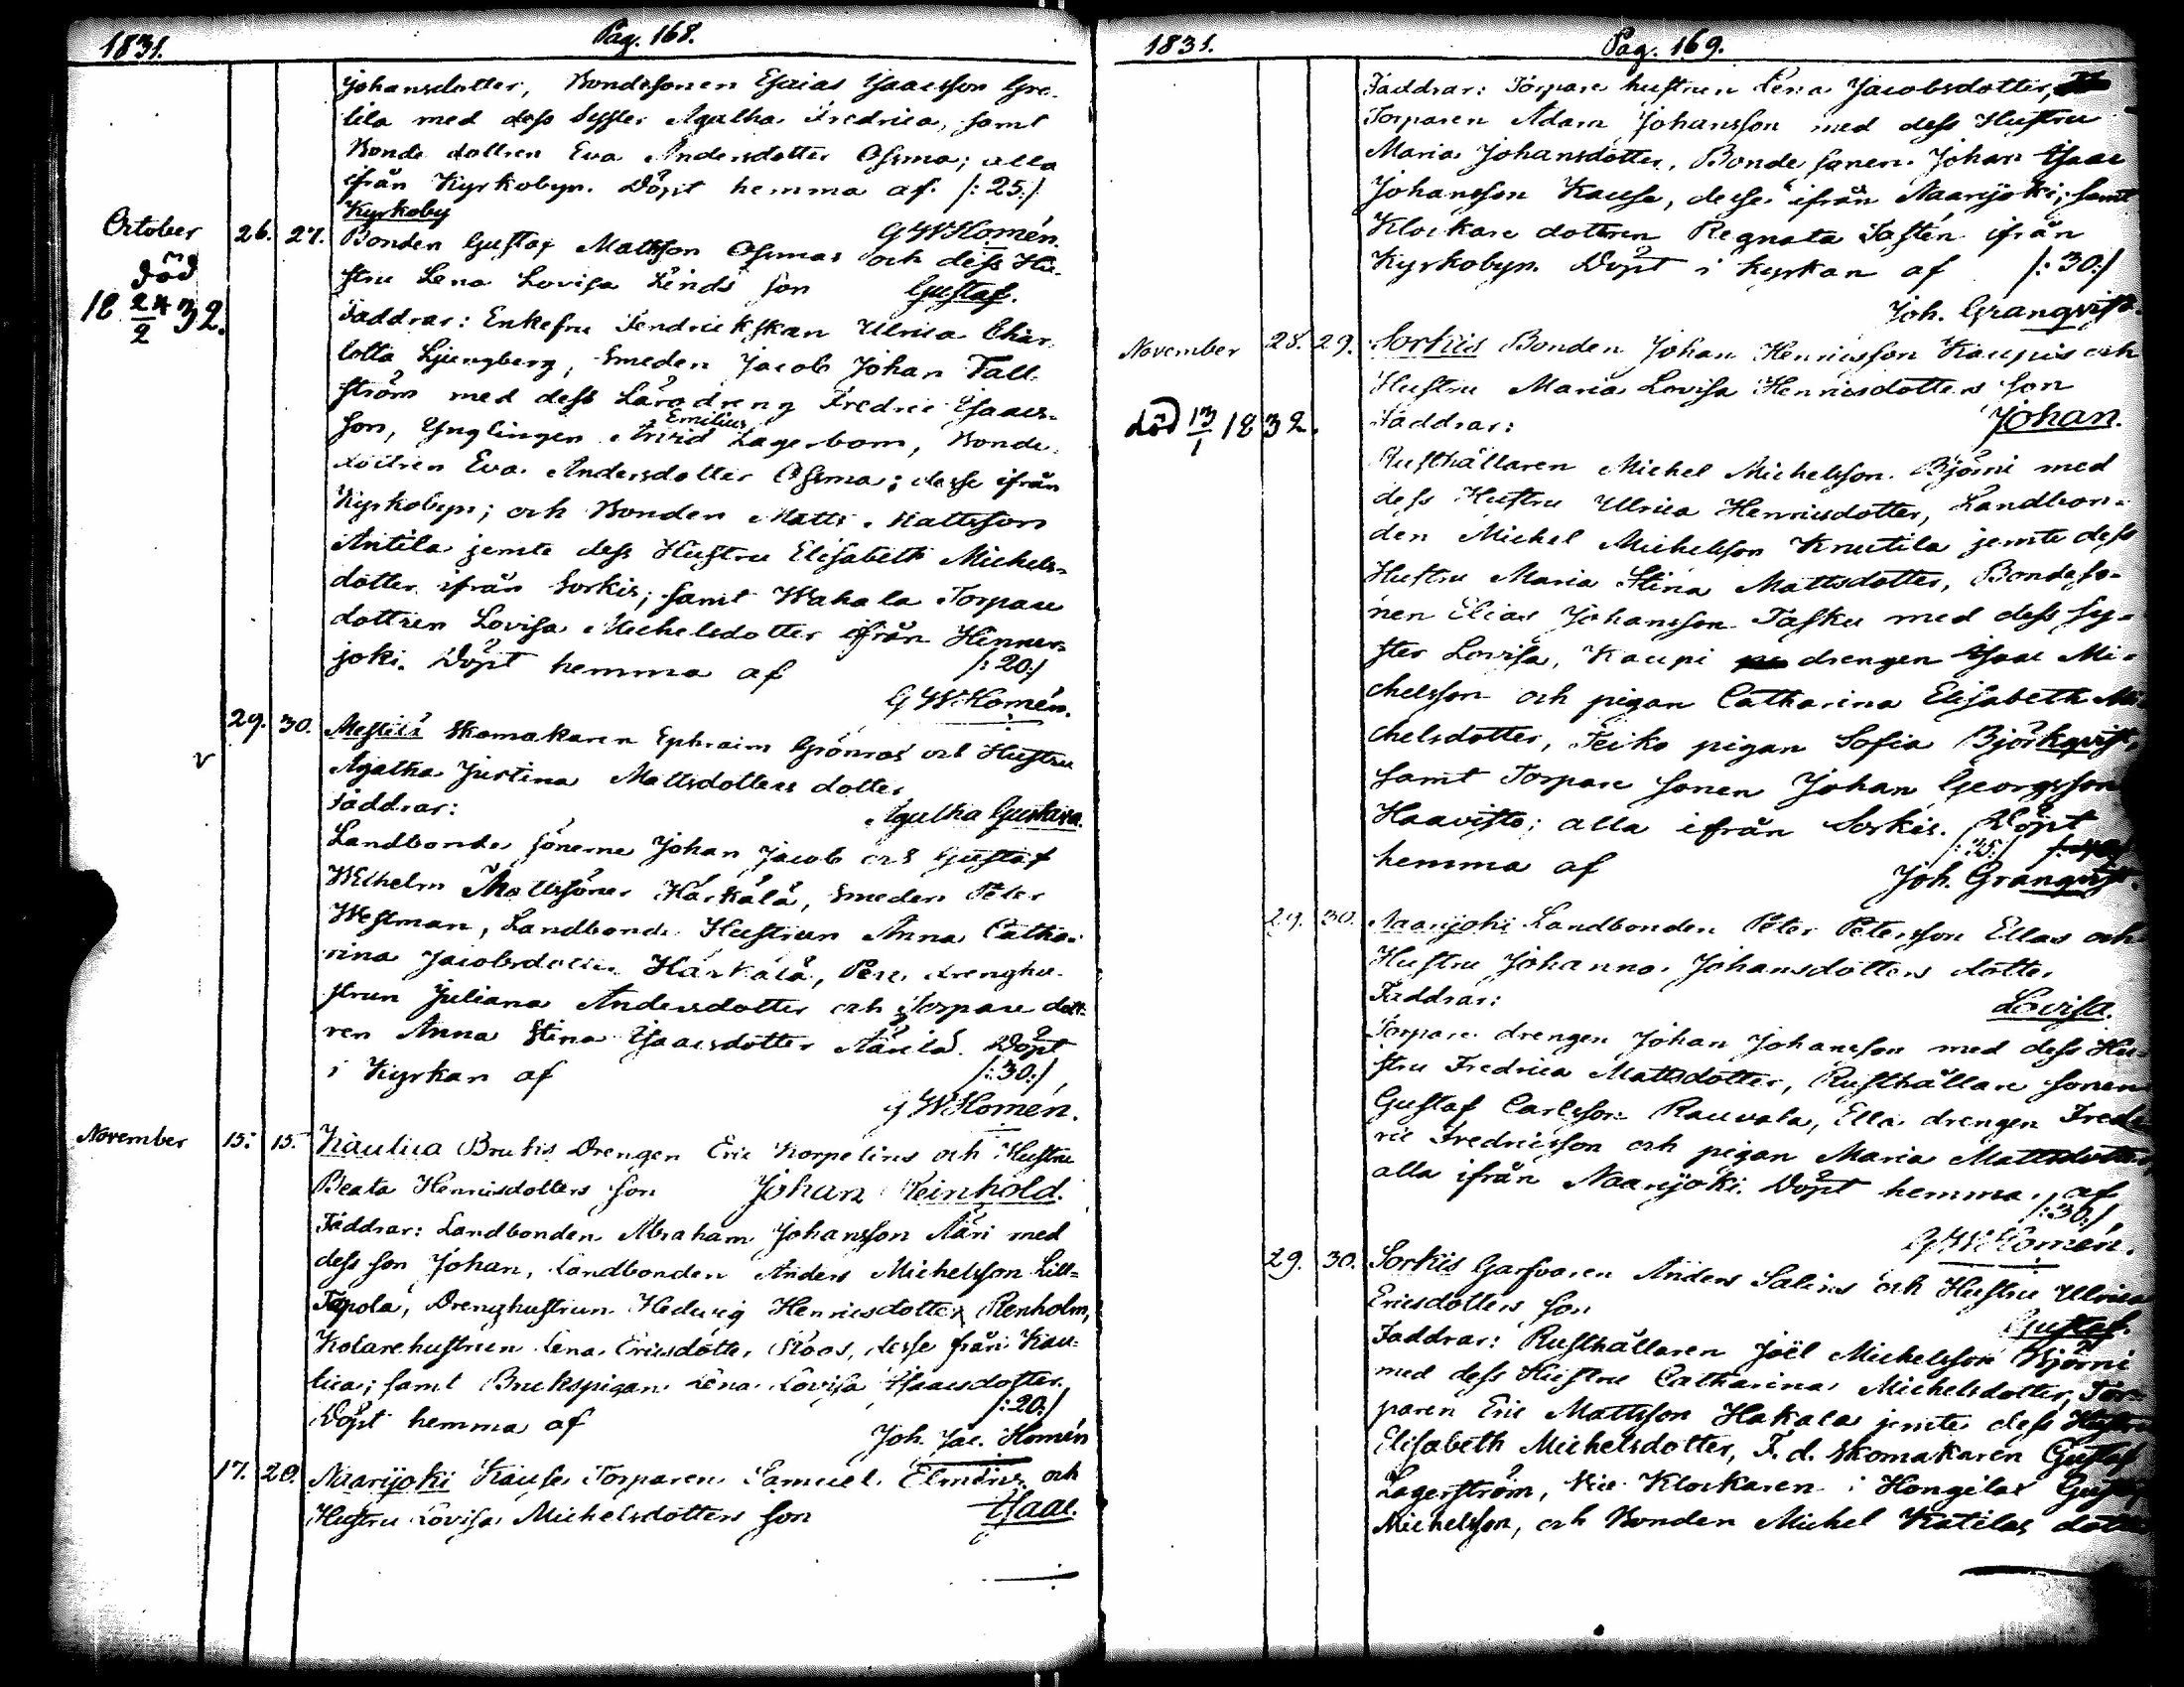 1831. Pag. 168.
Johansdotter, Bondesonen Esaias Isaacsson Gre-
lila med dess Syster Agatha Fredrica, samt
Bonde dottren Eva Andersdotter Ossma; alla
ifrån Kyrkobyn. Döpt hemma af. /:25:/
GWHomén.
Kyrkoby
October 26. 27. Bonden Gustaf Mattsson Ossmas och dess Hu-
död 18 24/2 32.
stru Lena Lovisa Linds son Gustaf.
Faddrar: Enkefru Fendrickskan Ulrica Char-
lotta Ljungberg, Smeden Jacob Johan Fall-
ström med dess Lärodreng Fredric Isaacs-
son, Ynglingen Arvid Emilius Lagerbom, Bonde-
dottren Eva Andersdotter Ossma; desse ifrån
Kyrkobyn; och Bonden Matts Mattsson
Antila jemte dess Hustru Elisabeth Michels-
dotter ifrån Sorkis; samt Wahala Torpare
dottren Lovisa Michelsdotter ifrån Hinner-
joki. Döpt hemma af /:20:/
GWHomén.
29. 30. Mestilä Skomakaren Ephraim Grönroos och Hustru
v
Agatha Justina Mattsdotters dotter
Faddrar: Agatha Gustava.
Landbonde sönerne Johan Jacob och Gustaf
Wilhelm Mattssöner Härkälä, Smeden Peter
Westman, Landbonde Hustrun Anna Catha-
rina Jacobsdotter Härkälä, drenghu-
strun Juliana Andersdotter och Torpare dott-
ren Anna Stina Isaacsdotter Äärilä. Döpt
i Kyrkan af /:30:/
GWHomén.
November 15. 15. Kauttua Bruks Drengen Eric Korpelins och Hustru
Beata Henricsdotters son Johan Reinhold.
Faddrar: Landbonden Abraham Johansson Ääri med
dess son Johan, Landbonden Anders Michelsson Lill-
Tapola, Drenghustrun Hedvig Henricsdotter Renholm,
Kolarehustrun Lena Ericsdotter Roos, desse från Kau-
tua; samt Brukspigan Lena Lovisa Isaacsdotter.
/:20:/
Döpt hemma af
Joh. Jac. Homén
17. 20. Naarijoki Kause Torparen Samuel Elméns och
Hustru Lovisa Michelsdotters son Isaac.
1831. Pag. 169.
Faddrar: Torpare hustrun Lena Jacobsdotter,
Torparen Adam Johansson med dess Hustru
Maria Johansdotter, Bonde sonen Johan Isaac
Johansson Kause, desse ifrån Naarijoki; samt
Klockare dottren Regnata Fastén ifrån
Kyrkobyn. Döpt i kyrkan af /:30:/
Joh. Granqvist.
November 28. 29. Sorkis Bonden Johan Henricsson Kaupis och
Hustru Maria Lovisa Henricsdotters son
död 13/1 1832.
Faddrar: Johan.
Rusthållaren Michel Michelsson Björni med
dess Hustru Ulrica Henricsdotter, Landbon-
den Michel Michelsson Knutila jemte dess
Hustru Maria Stina Mattsdotter, Bondeso-
nen Elias Johansson Tasku med dess Sy-
ster Lovisa, Kaupi drengen Isaac Mi-
chelsson och pigan Catharina Elisabeth Mi-
chelsdotter, Feiko pigan Sofia Björkqvist,
samt Torpare sonen Johan Georgsson
Haavisto; alla ifrån Sorkis. Döpt
/:25:/
hemma af
Joh. Granqvist.
29. 30. Naarijoki Landbonden Peter Petersson Ellas och
Hustru Johanna Johansdotters dotter
Faddrar: Lovisa.
Torpare drengen Johan Johansson med dess Hu-
stru Fredrica Mattsdotter, Rusthållare sonen
Gustaf Carlsson Rauvala, Ella drengen Frede-
ric Fredricsson och pigan Maria Mattsdotter
alla ifrån Naarijoki. Döpt hemma af
/:30:/
GWHomén.
29. 30. Sorkis Garfvaren Anders Salins och Hustru Ulrica
Ericsdotters son Gustaf.
Faddrar: Rusthållaren Joël Michelsson Björni
med dess Hustru Catharina Michelsdotter, Tor-
paren Eric Mattsson Hakala jemte dess Hustru
Elisabeth Michelsdotter, F. d. Skomakaren Gustaf
Lagerström, Vice Klockaren i Hongila Gustaf
Michelsson, och Bonden Michel Katilas dotter